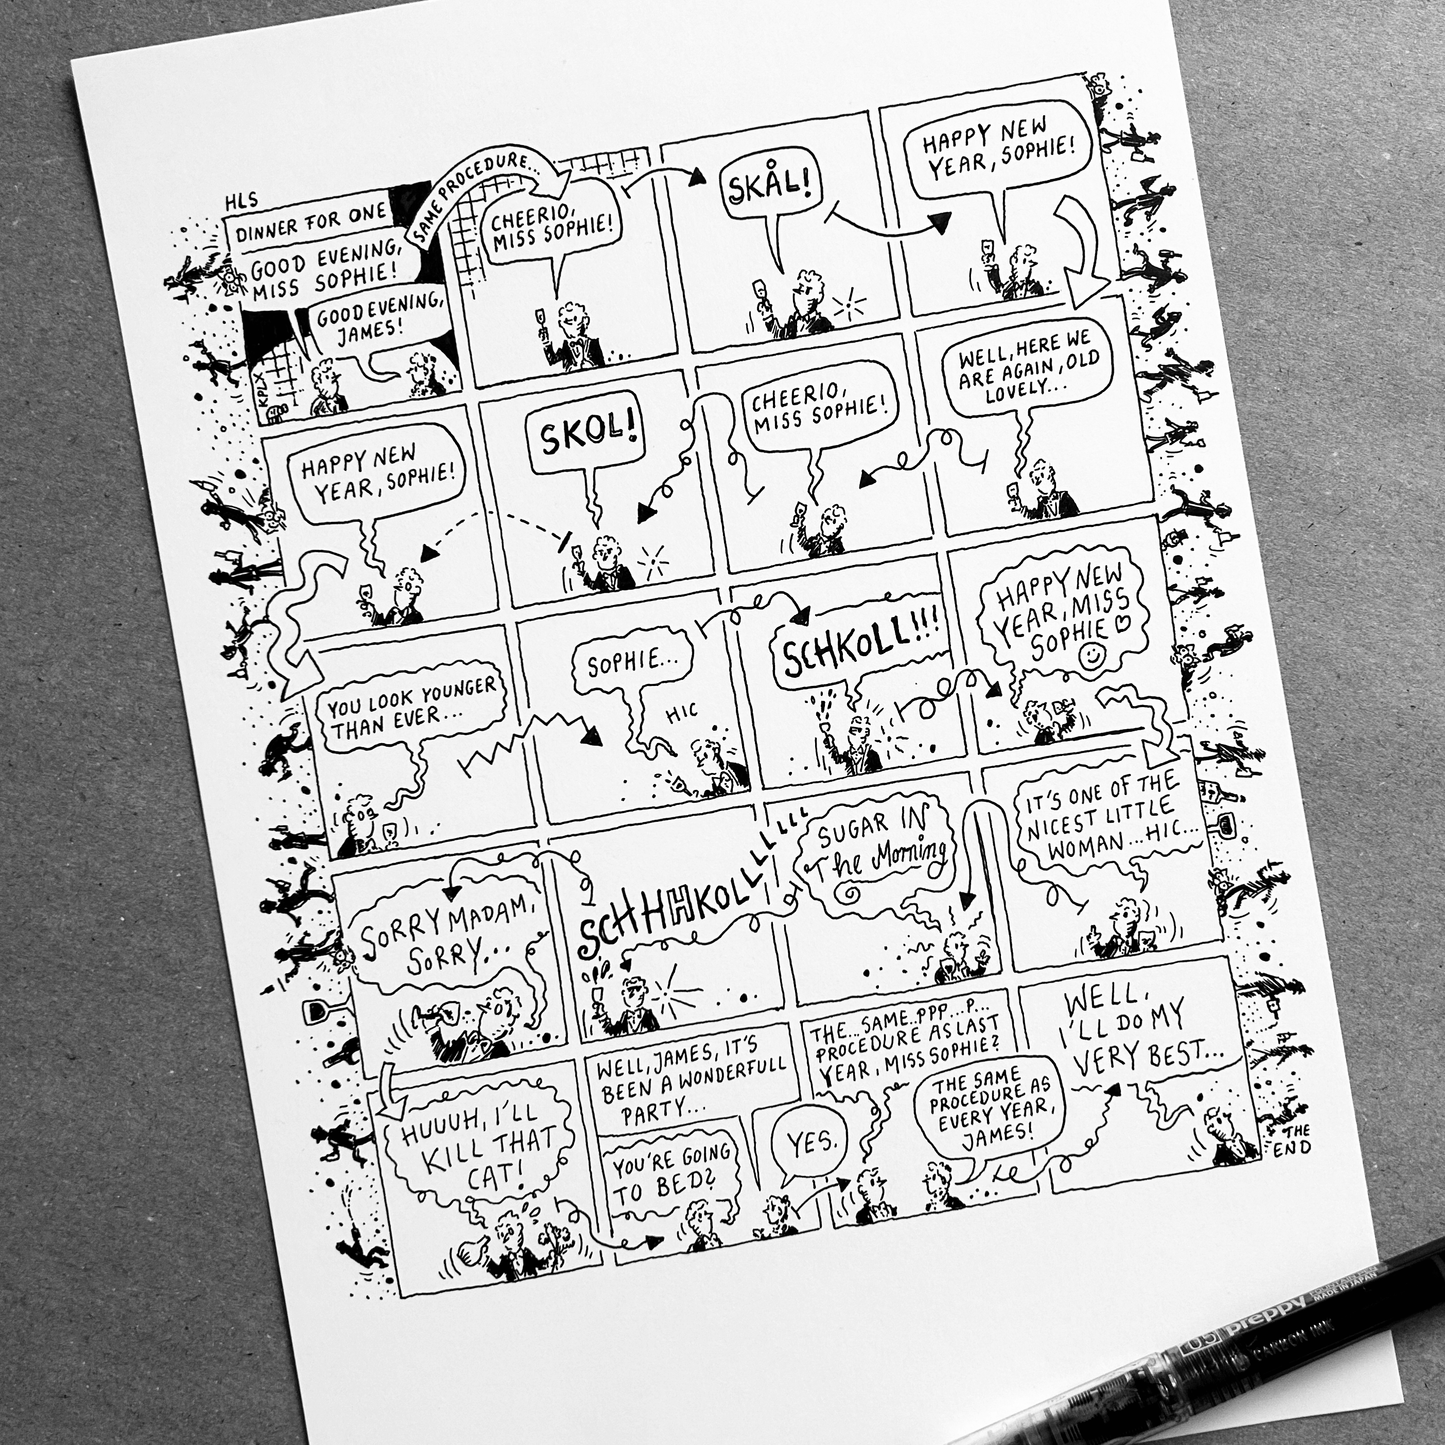 HLS
DINNER FOR ONE
GOOD EVENING,
MISS SOPHIE!
GOOD EVENING,
JAMES!
KPLX
SAME PROCEDURE...
CHEERIO,
MISS SOPHIE!
SKÅL!
HAPPY NEW
YEAR, SOPHIE!
WELL, HERE WE
ARE AGAIN, OLD
LOVELY...
CHEERIO,
MISS SOPHIE!
SKOL!
HAPPY NEW
YEAR, SOPHIE!
YOU LOOK YOUNGER
THAN EVER...
SOPHIE...
HIC
SCHKOLL!!!
HAPPY NEW
YEAR, MISS
SOPHIE
IT'S ONE OF THE
NICEST LITTLE
WOMAN...HIC...
SUGAR IN
The Morning
SCHHHKOLLLLLLLL
SORRY MADAM,
SORRY...
HUUUH, I'LL
KILL THAT
CAT!
WELL, JAMES, IT'S
BEEN A WONDERFULL
PARTY...
YOU'RE GOING
TO BED?
YES.
THE...SAME..PPP...P...
PROCEDURE AS LAST
YEAR, MISS SOPHIE?
THE SAME
PROCEDURE AS
EVERY YEAR,
JAMES!
WELL,
I'LL DO MY
VERY BEST...
THE
END
05 preppy
MADE IN JAPAN
CARBON INK